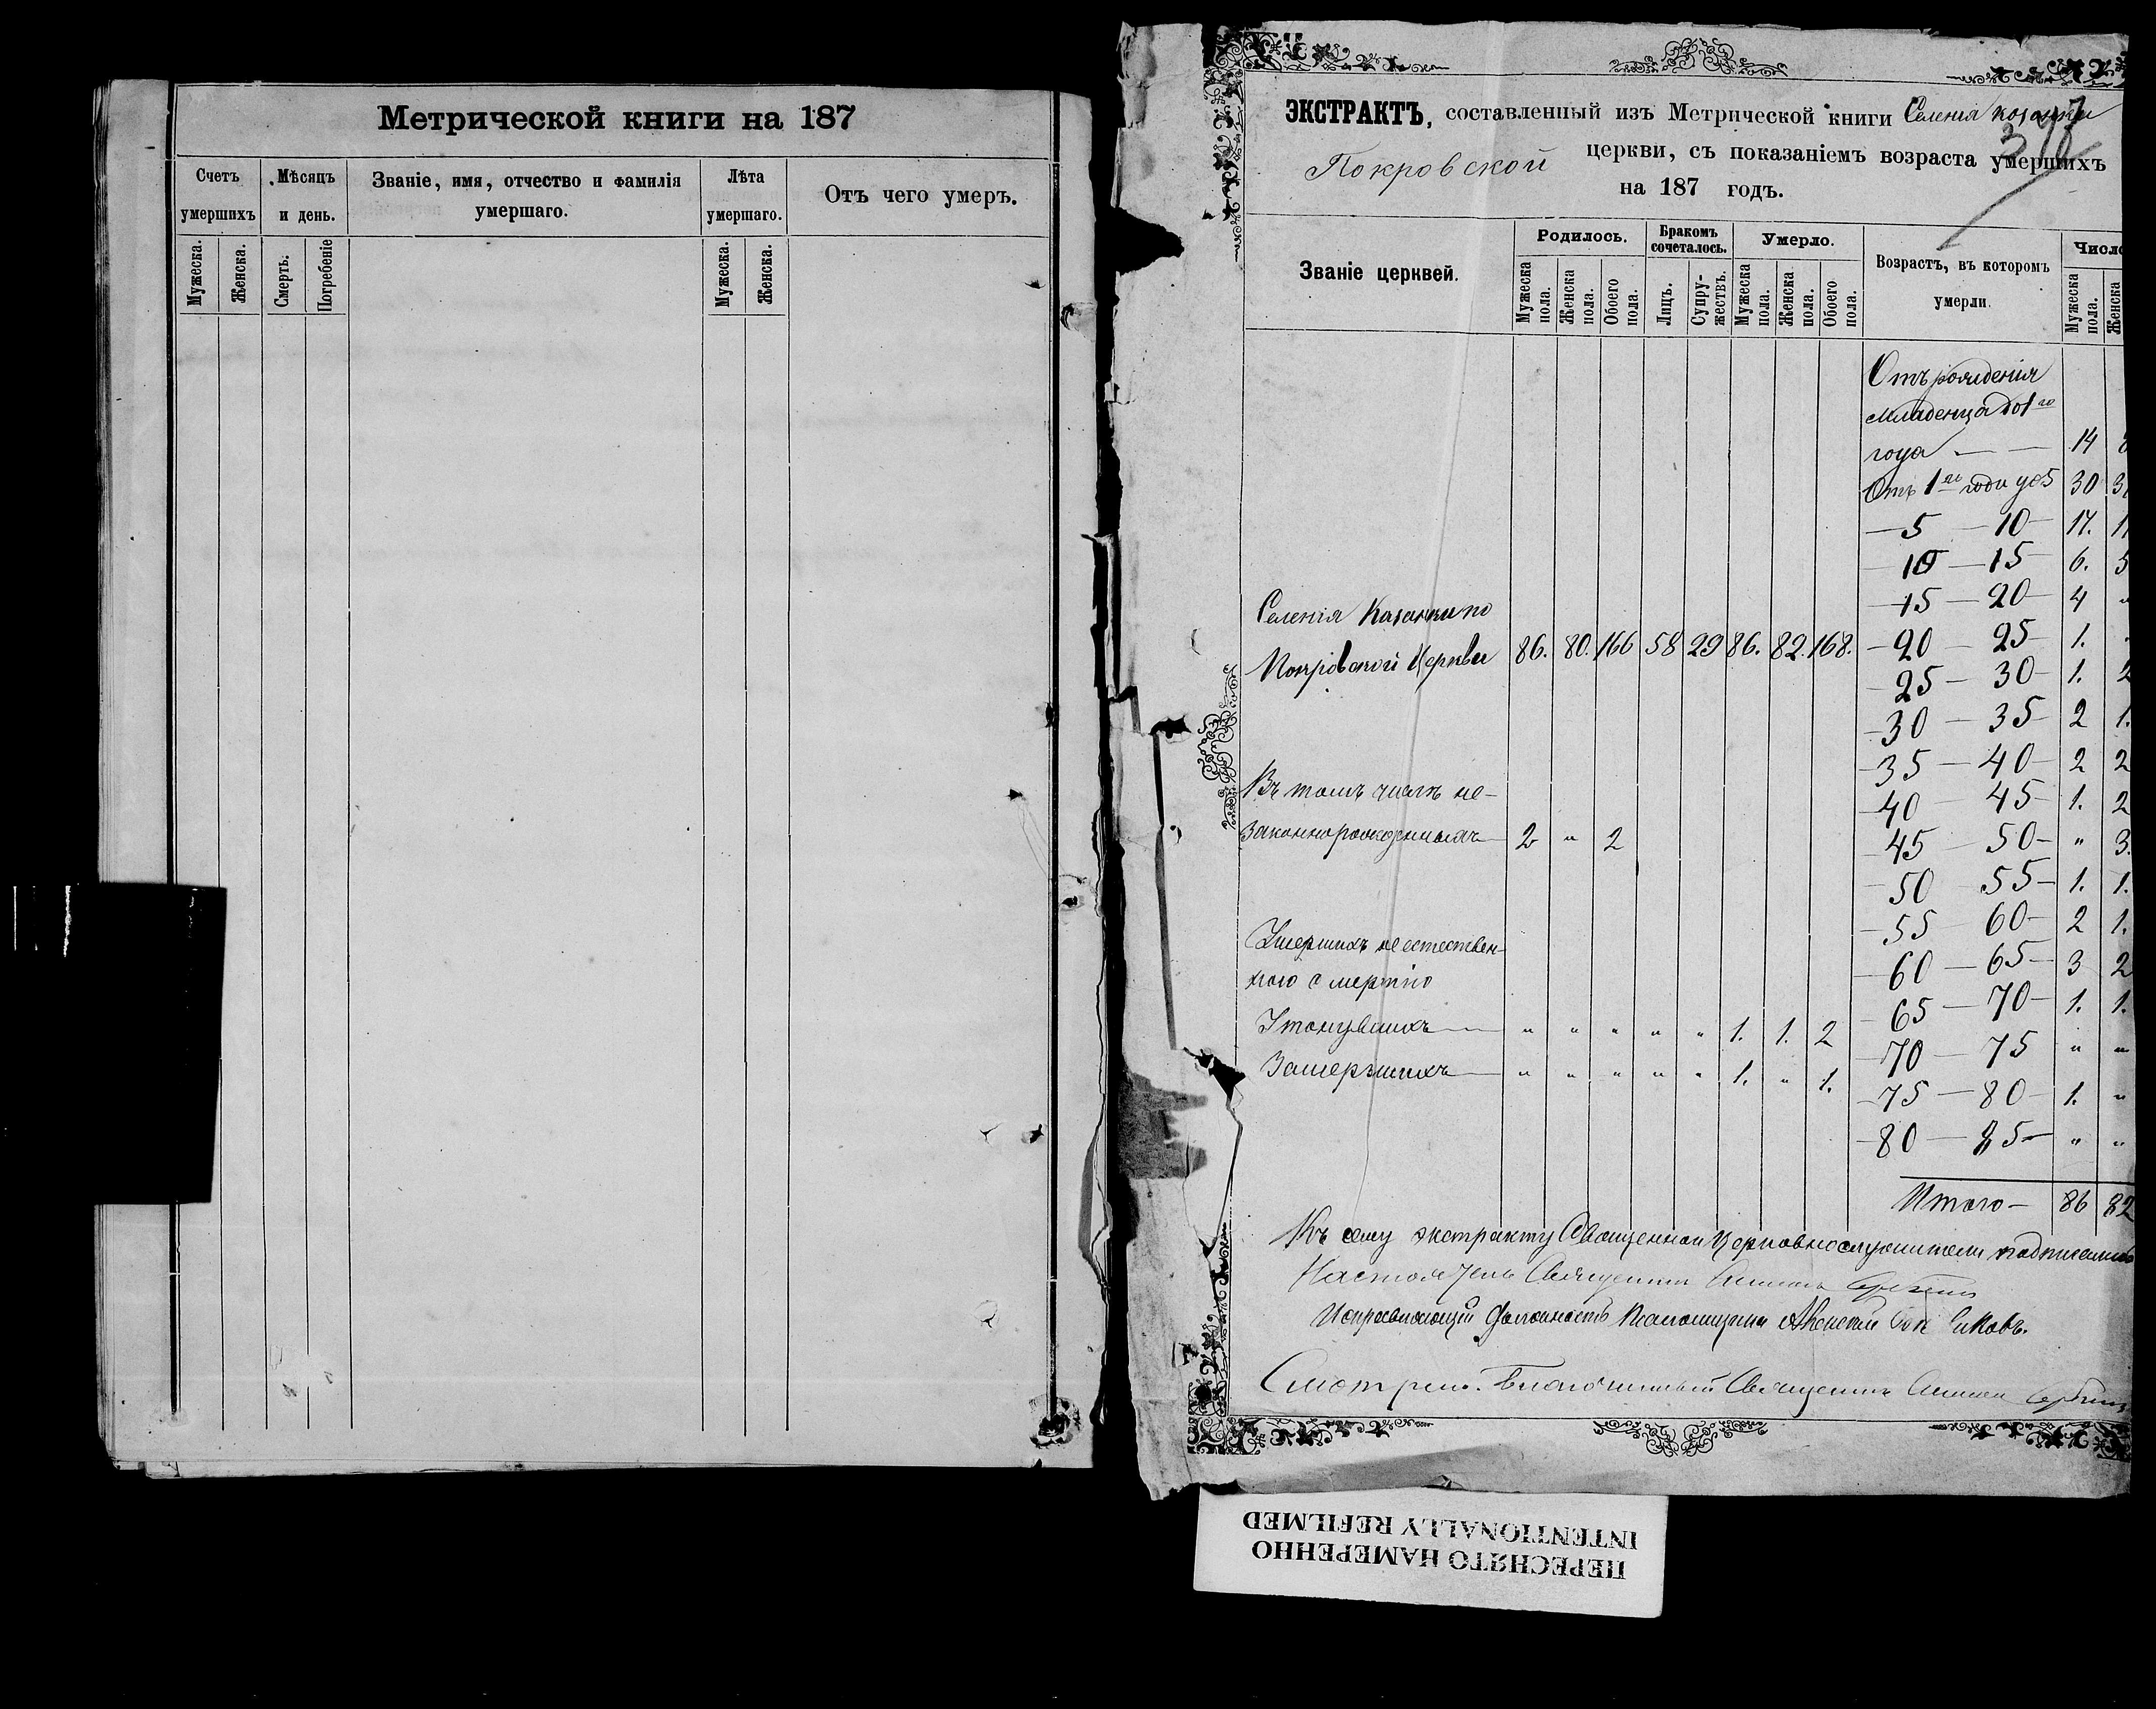 Метрической книги на 187
Счетъ умершихъ
Мѣсяцъ и день.
Званіе, имя, отчество и фамилія умершаго.
Лѣта умершаго.
Отъ чего умеръ.
Мужеска.
Женска.
Смерть.
Погребеніе
Мужеска.
Женска.
ЭКСТРАКТЪ, составленный изъ Метрической книги Селенія Козанки
Покровской церкви, съ показаніемъ возраста умершихъ
на 187 годъ.
Званіе церквей.
Родилось.
Бракомъ сочеталось.
Умерло.
Возрастъ, въ которомъ умерли.
Число
Мужеска пола.
Женска пола.
Обоего пола.
Лицъ.
Супружествъ.
Мужеска пола.
Женска пола.
Обоего пола.
Мужеска пола.
Женска
Отъ рожденія
младенца до 1го
года — — 14
Отъ 1го года до 5 30
— 5 — 10 — 17.
— 10 — 15 6. 5
— 15 — 20 — 4 „
Селенія Казанки по
Покровской Церкви 86. 80. 166 58 29 86. 82. 168.
— 20 — 25 — 1.
— 25 — 30 — 1. 2
— 30 — 35 — 2 1.
— 35 — 40 — 2 2
— 40 — 45 — 1. 2
— 45 — 50 — „ 3.
— 50 — 55 — 1. 1.
— 55 — 60 — 2 1.
— 60 — 65 — 3 2
— 65 — 70 — 1. 1.
— 70 — 75 „ „
— 75 — 80 — 1. „
— 80 — 85 — „ „
Итого — 86 82
Въ томъ числѣ не-
законнорожденныхъ — 2 „ 2
Умершихъ неестествен-
ною смертію
Утонувшихъ — „ „ „ „ „ 1. 1. 2
Замерзшихъ — „ „ „ „ „ 1. „ 1.
Къ сему экстракту Священно и Церковнослужители подписались
Настоятель Священникъ
Исправляющій должность Псаломщика
Смотрѣлъ. Благочинный Священникъ
ПЕРЕСНЯТО НАМЕРЕННО
INTENTIONALLY REFILMED